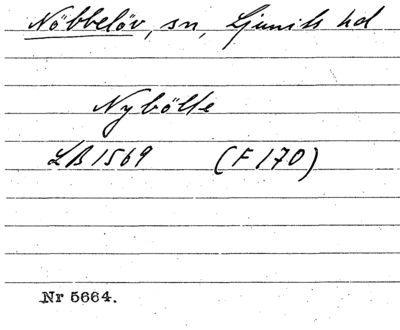 Nöbbelöv, sn, Ljunits hd
Nybölle
LB 1569 (F 170)
Nr 5664.